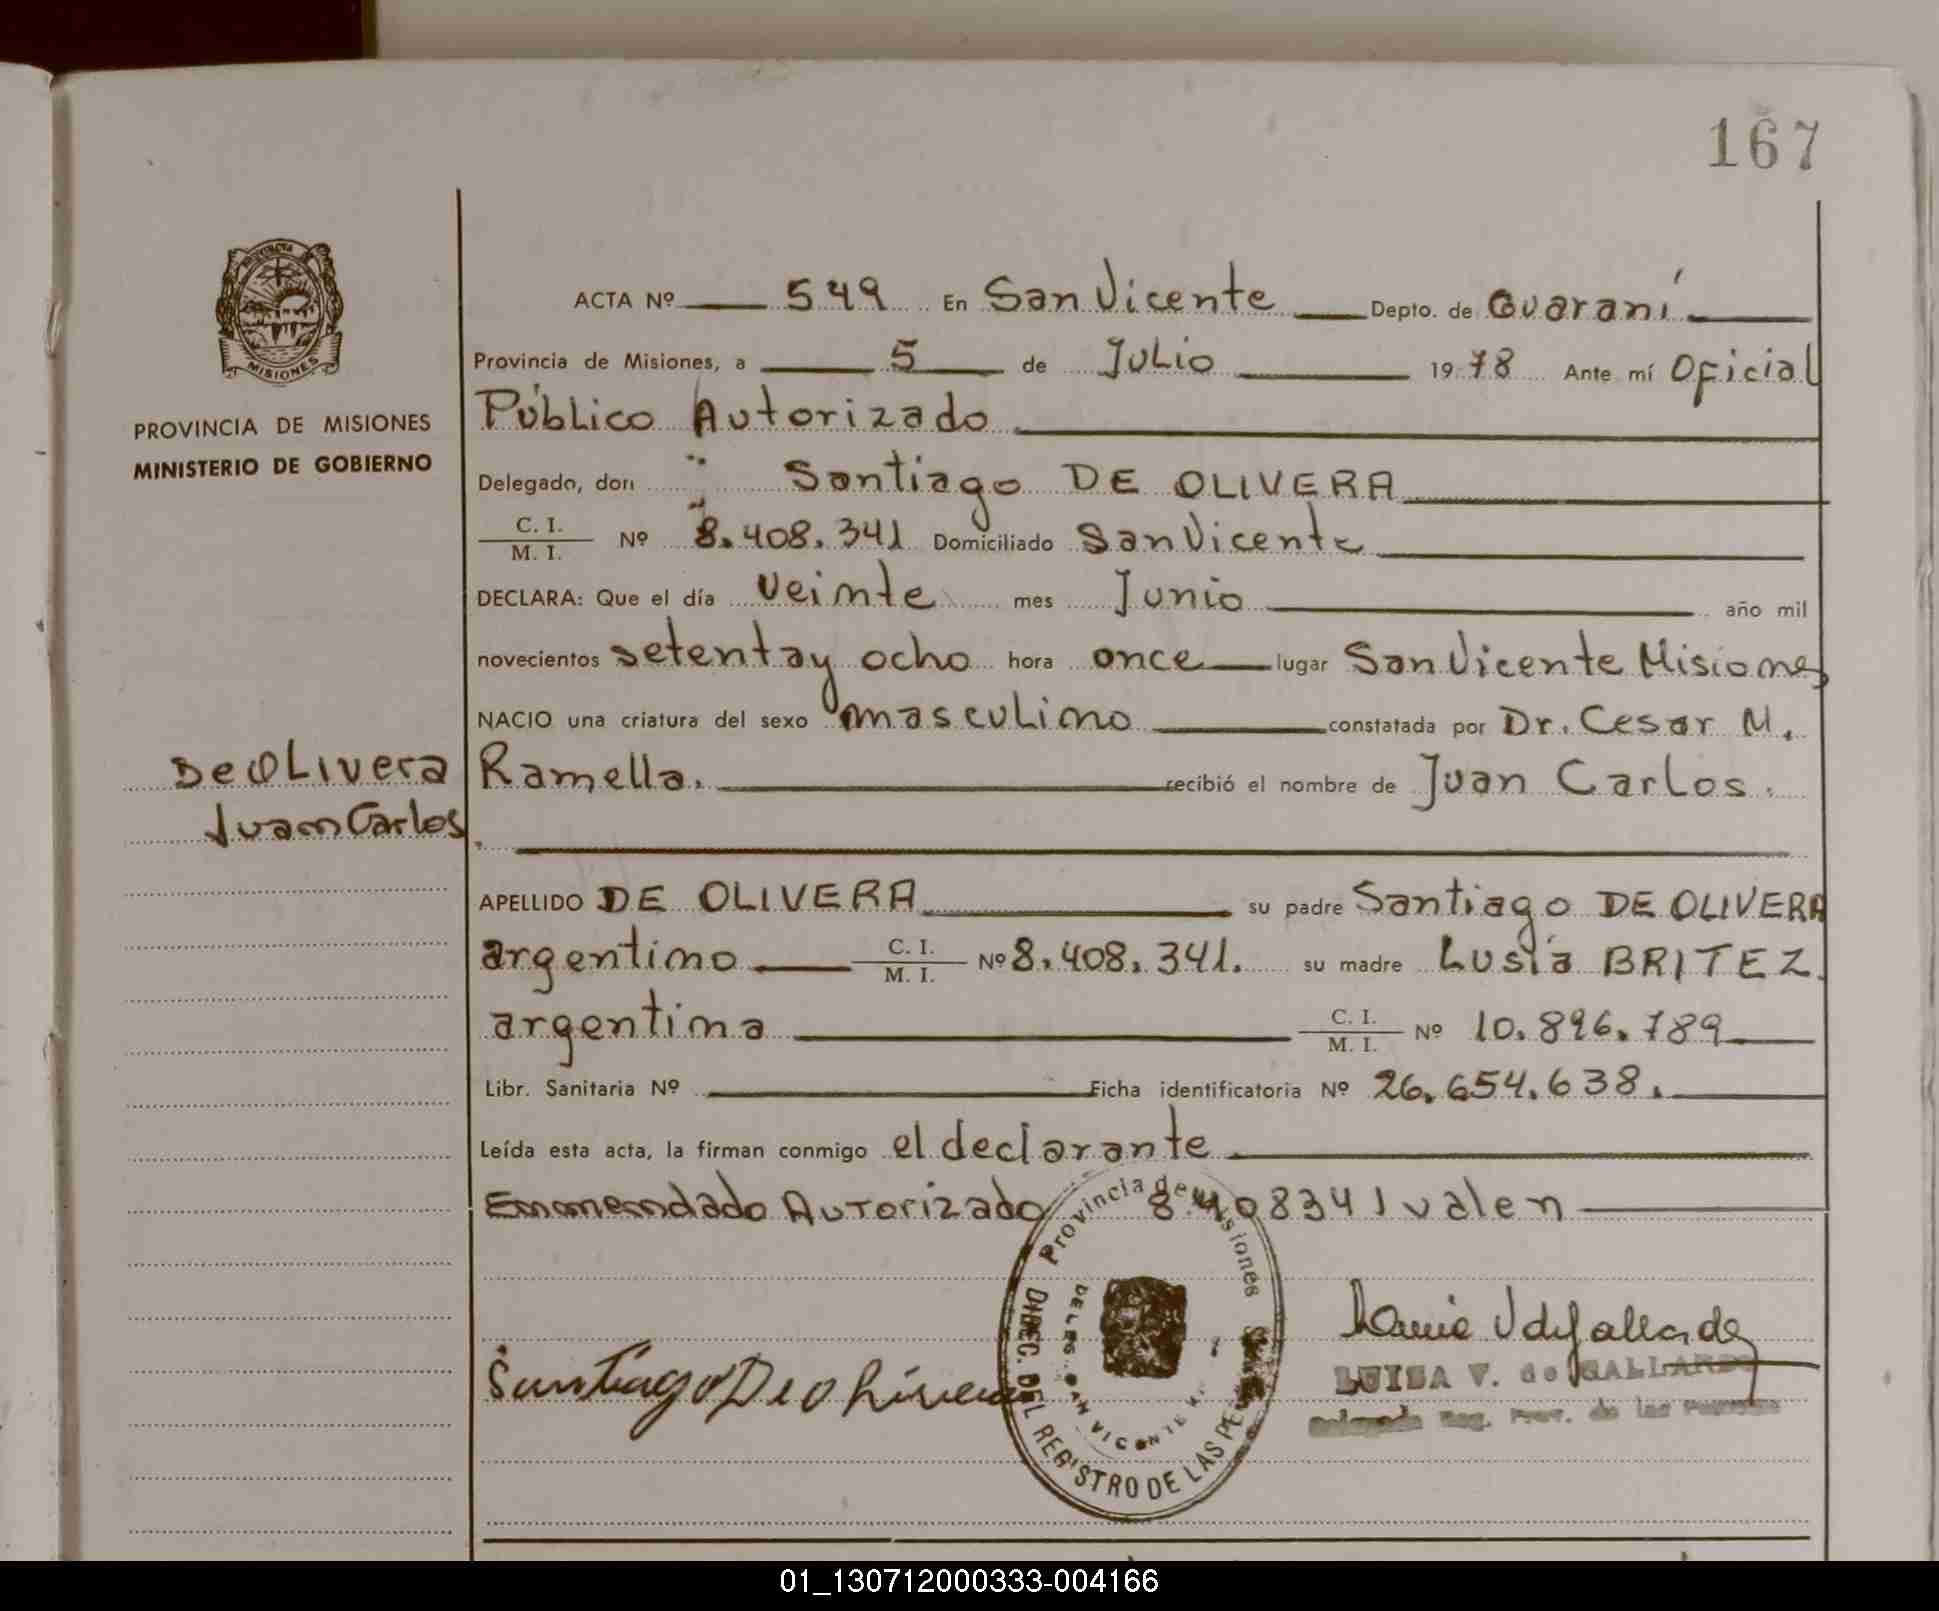 167
ACTA Nº 549 En San Vicente Depto. de Guaraní
Provincia de Misiones, a 5 de Julio 1978 Ante mí Oficial
Público Autorizado
PROVINCIA DE MISIONES
MINISTERIO DE GOBIERNO
MISIONES
Delegado, don Santiago DE OLIVERA
C. I.
M. I. Nº 8.408.341 Domiciliado San Vicente
DECLARA: Que el día veinte mes Junio año mil
novecientos setenta y ocho hora once lugar San Vicente Misiones
NACIO una criatura del sexo masculino constatada por Dr. Cesar M.
Ramella. recibió el nombre de Juan Carlos.
De OLivera
Juan Carlos
APELLIDO DE OLIVERA su padre Santiago DE OLIVERA
argentino C. I.
M. I. Nº 8.408.341. su madre Lusía BRITEZ.
argentina C. I.
M. I. Nº 10.896.789
Libr. Sanitaria Nº Ficha identificatoria Nº 26.654.638.
Leída esta acta, la firman conmigo el declarante
Enmendado Autorizado 8408341 valen
Provincia de Misiones
DIREC. DEL REGISTRO DE LAS PE
SAN VICENTE
Santiago De Olivera
LUISA V. de GALLARDO
Delegada Reg. Prov. de las Personas
01_130712000333-004166